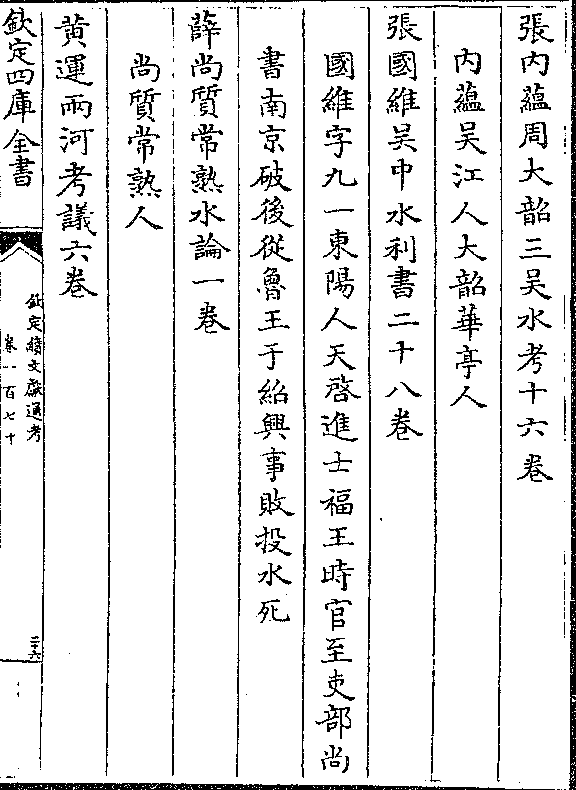 張内蘊周大韶三吴水考十六卷
内蘊吴江人大韶華亭人
張國維吴中水利書二十八卷
國維字九一東陽人天啓進士福王時官至吏部尚
書南京破後從魯王于紹興事敗投水死
薛尚質常熟水論一卷
尚質常熟人
黄運兩河考議六卷
欽定四庫全書
欽定續文獻通考
卷一百七十
二十六